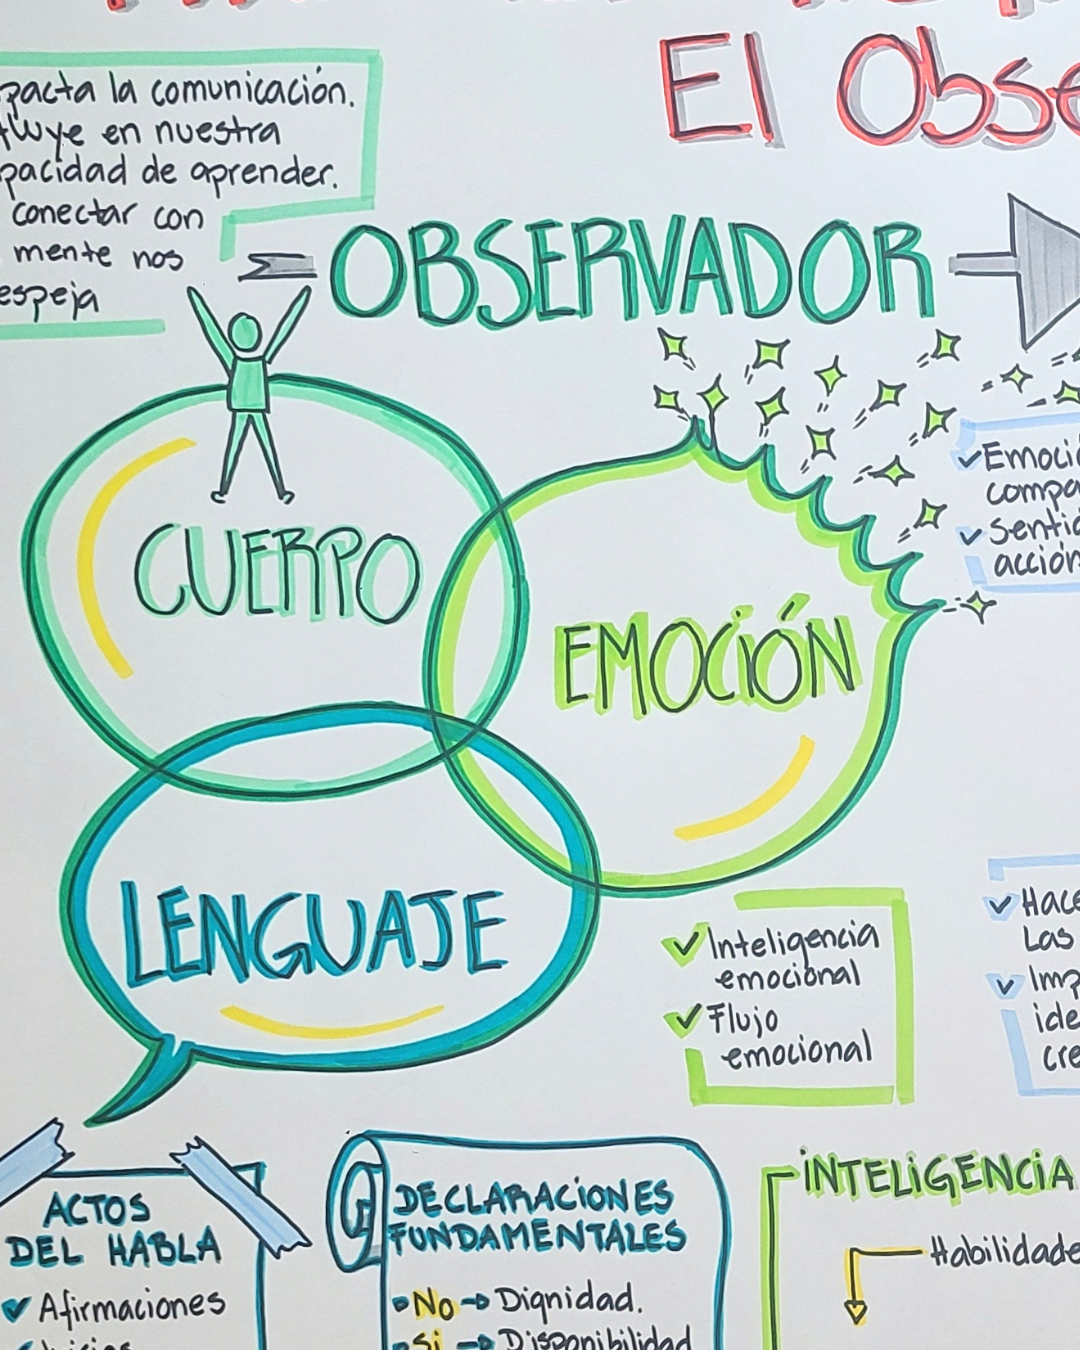 El Obse
pacta la comunicación.
fluye en nuestra
pacidad de aprender.
conectar con
mente nos
espeja
OBSERVADOR
CUERPO
EMOCIÓN
LENGUAJE
✓Emoci
compa
✓Sentid
acción
✓Inteligencia
emocional
✓Flujo
emocional
✓Hace
Las
✓Imp
ide
cre
ACTOS
DEL HABLA
✓Afirmaciones
DECLARACIONES
FUNDAMENTALES
•No→Dignidad.
•Si→Disponibilidad
INTELIGENCIA
Habilidade